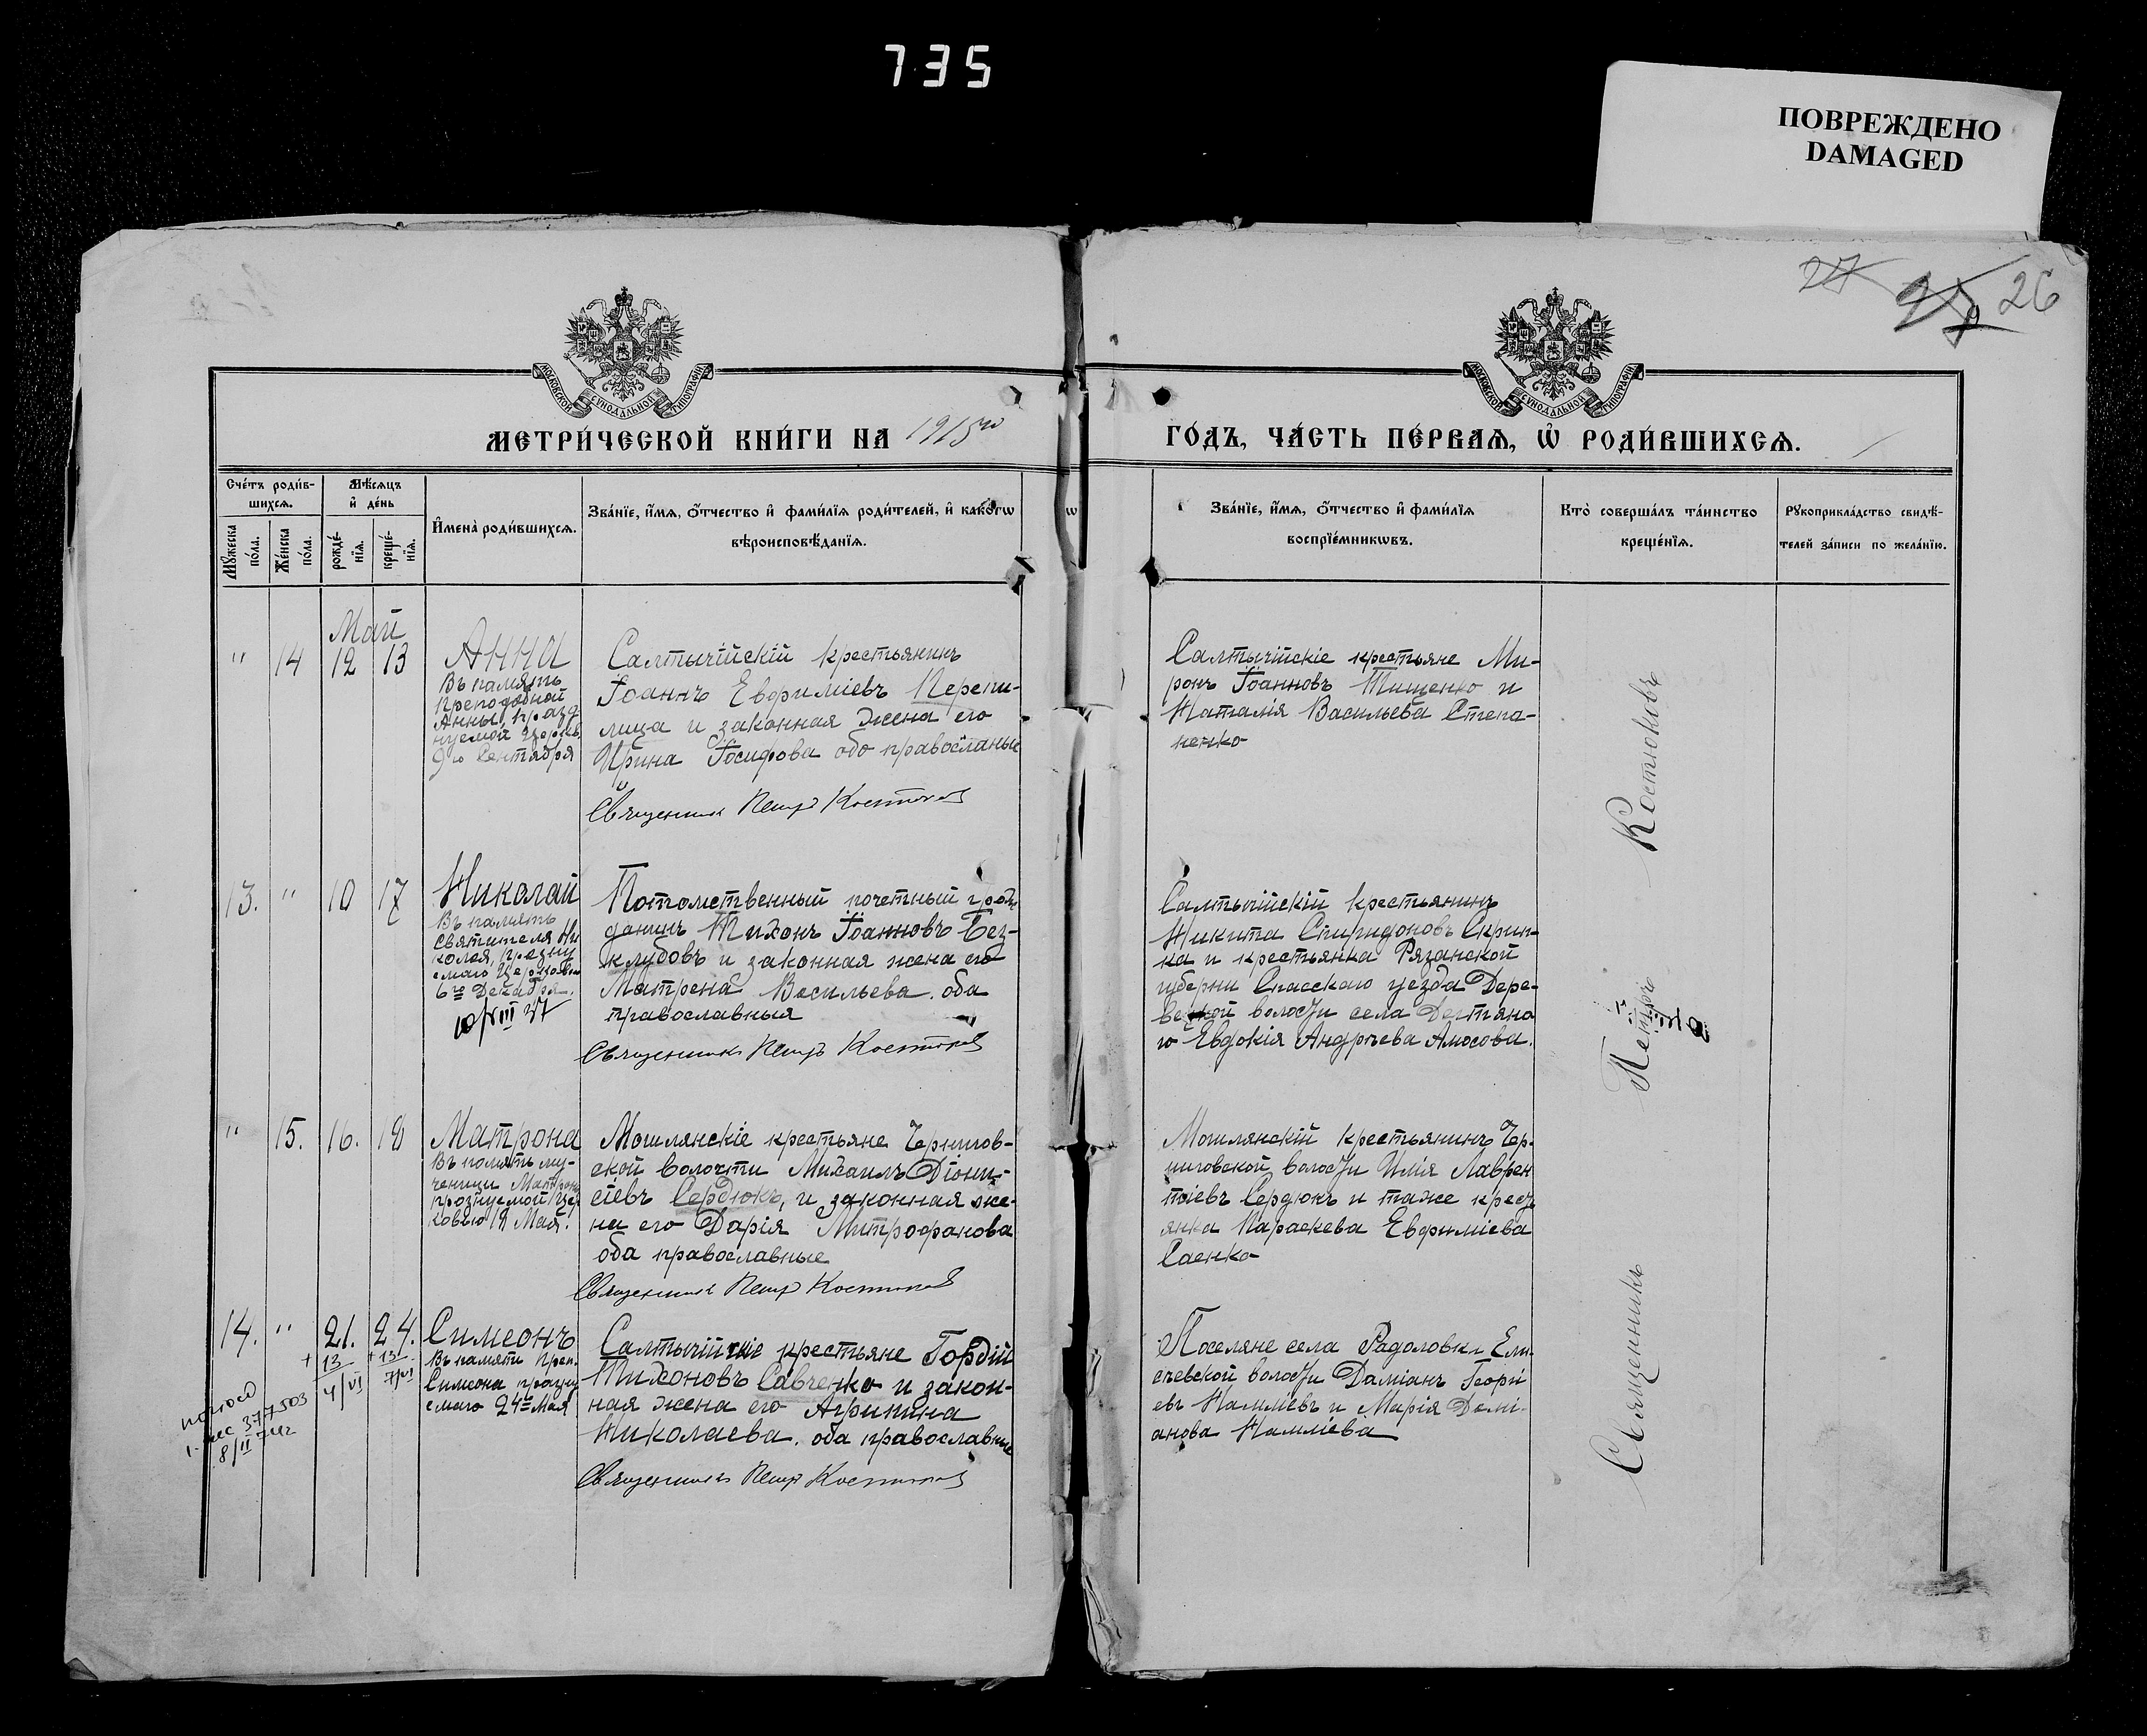 735
ПОВРЕЖДЕНО
DAMAGED
27 26
МОСКОВСКОЙ СѴНОДАЛЬНОЙ ТИПОГРАФІИ
МОСКОВСКОЙ СѴНОДАЛЬНОЙ ТИПОГРАФІИ
МЕТРИ́ЧЕСКОЙ КНИ́ГИ НА 1915й
ГО́ДЪ, ЧА́СТЬ ПЕ́РВАѦ, Ѡ҆ РОДИ́ВШИХСѦ.
Сче́тъ роди́в-
шихсѧ.
Мꙋ́жеска по́ла.
Же́нска по́ла.
Мѣ́сѧцъ
и҆ де́нь
рожде́-
нїѧ.
креще́-
нїѧ.
И҆мена̀ роди́вшихсѧ.
Зва́нїе, и҆́мѧ, ѻ҆́тчество и҆ фами́лїѧ роди́телей, и҆ како́гѡ
вѣроисповѣ́данїѧ.
Зва́нїе, и҆́мѧ, ѻ҆́тчество и҆ фами́лїѧ
воспрїе́мникѡвъ.
Кто̀ соверша́лъ та́инство
креще́нїѧ.
Рꙋкоприкла́дство свидѣ́-
телей за́писи по жела́нїю.
Май
" 14 12 13
Анна
Въ память
преподобной
Анны, празд
нуемой Церков
9го Сентября
Салтычійскій крестьянинъ
Іоаннъ Евфиміевъ Перепи-
лица и законная жена его
Ирина Іосифова обо православные
Священникъ Петръ Костюковъ
Салтычійскіе крестьяне Ми-
ронъ Іоанновъ Тищенко и
Наталія Васильева Степа-
ненко
13. " 10 17
Николай
Въ память
Святителя Ни
колая, празну
емаго Церковью
6го Декабря.
10/VIII 37
Потомственный почетный граж
данинъ Тихонъ Іоанновъ Без-
клубовъ и законная жена его
Матрена Васильева. оба
православныя
Священникъ Петръ Костюковъ
Салтычійскій крестьянинъ
Никита Спиридоновъ Скрип-
ка и крестьянка Рязанской
губерніи Спасскаго уезда Дере-
венской волости села Дегтяна
го Евдокія Андреева Амосова.
" 15. 16. 18
Матрона
Въ память му-
ченицы Матроны
празнуемой Цер
ковью 18 Мая.
Мошлянскіе крестьяне Чернигов-
ской волости Михаилъ Діони-
сіевъ Сердюкъ, и законная же-
на его Дарія Митрофанова
оба православные
Священникъ Петръ Костюковъ
Мошлянскій крестьянинъ Чер-
ниговской волости Илія Лаврен
тіевъ Сердюкъ и таже крест
янка Параскева Евфиміева
Саенко
14. " 21. 24.
+13 +13
4/VI 7/VI
377503
8/II
Симеонъ
Въ память Преп.
Симеона празну
емаго 24го Мая
Салтычійскіе крестьяне Гордій
Тихоновъ Савченко и закон-
ная жена его Агрипина
Николаева. оба православные
Священникъ Петръ Костюковъ
Поселяне села Радоловки Ели
сеевской волости Даміанъ Георгі
евъ Намліевъ и Марія Домі-
анова Намліева
Священникъ Петръ Костюковъ